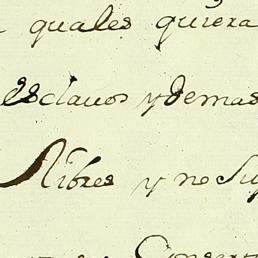 quales quiera
esclavos y demas
libres y no su